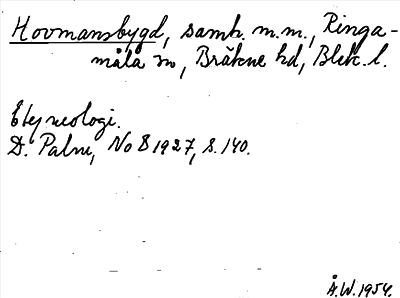 Hovmansbygd, samh. m.m., Ringa-
måla sn, Bräkne hd, Blek. l.
Etymologi.
D. Palm, NoB 1927, s. 140.
Å.W. 1954.